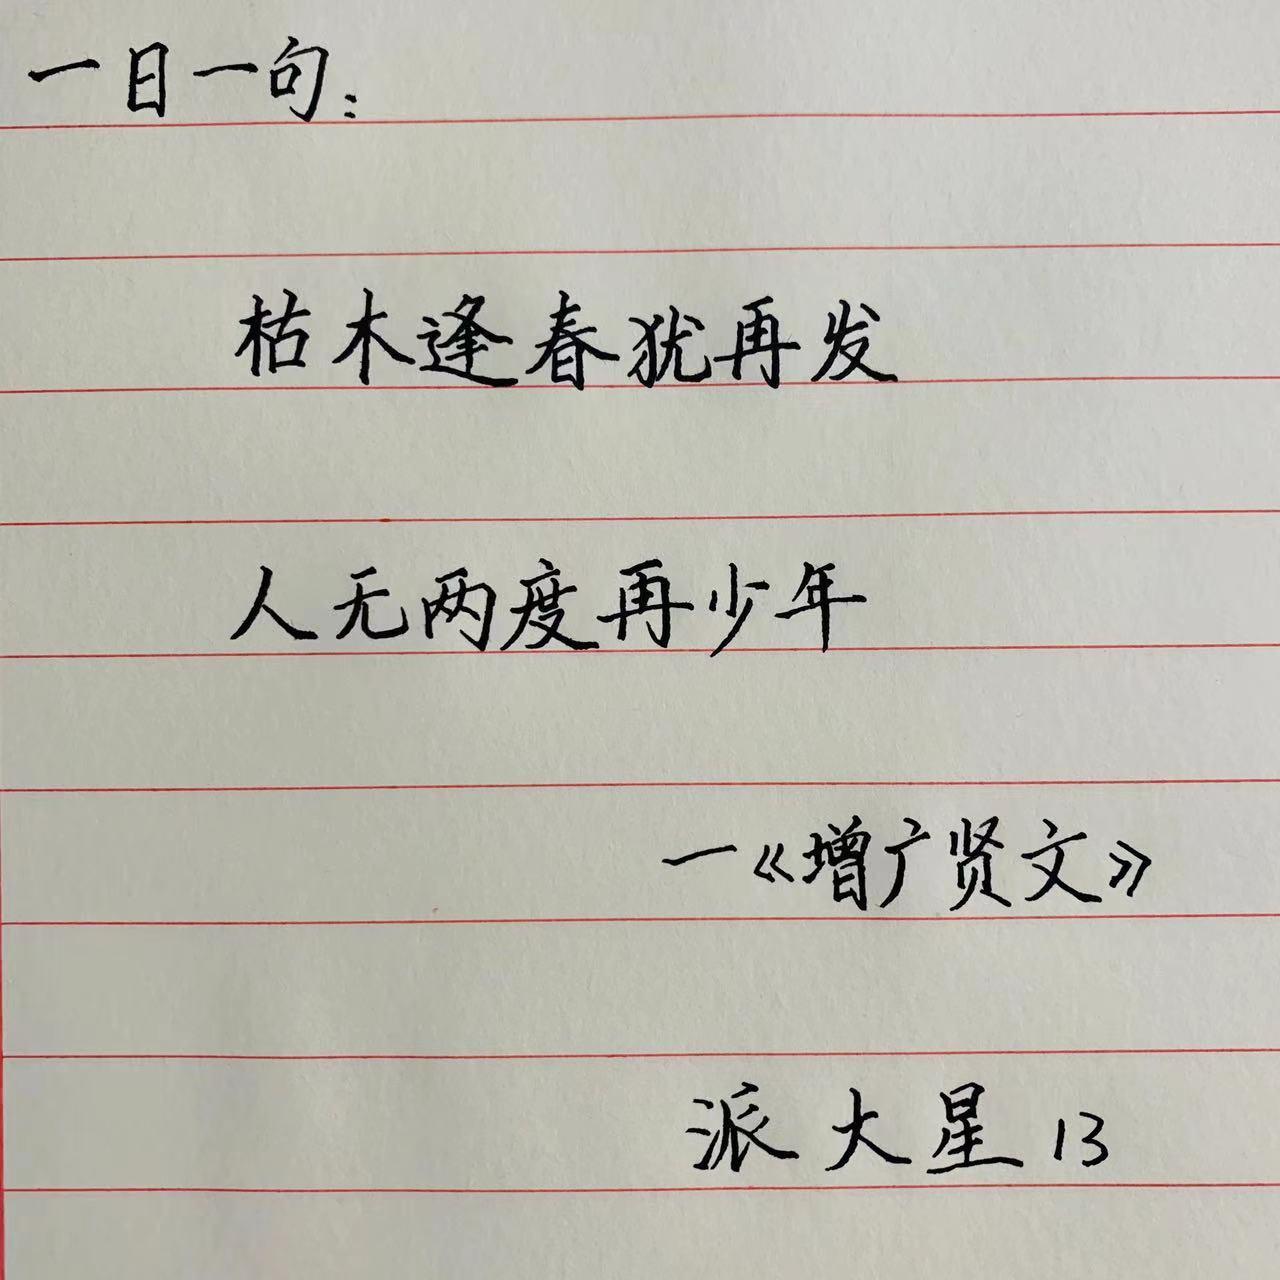 一日一句:
枯木逢春犹再发
人无两度再少年
一《增广贤文》
派大星 13